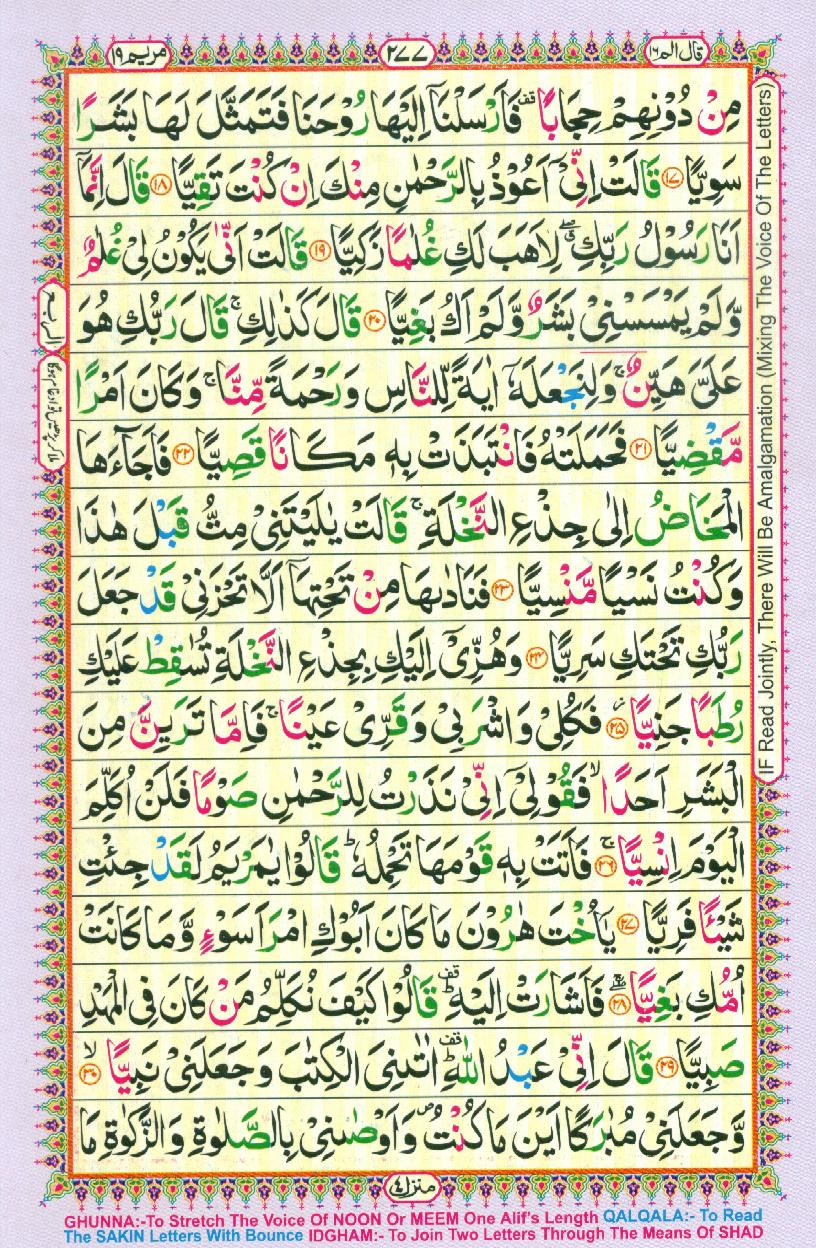 قال الم ١٦
٢٧٧
مريم ١٩
مِنْ دُوْنِهِمْ حِجَابًا ۪ۗ فَاَرْسَلْنَاۤ اِلَيْهَا رُوْحَنَا فَتَمَثَّلَ لَهَا بَشَرًا
سَوِيًّا ﴿۱۷﴾ قَالَتْ اِنِّيْۤ اَعُوْذُ بِالرَّحْمٰنِ مِنْكَ اِنْ كُنْتَ تَقِيًّا ﴿۱۸﴾ قَالَ اِنَّمَاۤ
اَنَا رَسُوْلُ رَبِّكِ ۖۗ لِاَهَبَ لَكِ غُلٰمًا زَكِيًّا ﴿۱۹﴾ قَالَتْ اَنّٰى يَكُوْنُ لِيْ غُلٰمٌ
وَّلَمْ يَمْسَسْنِيْ بَشَرٌ وَّلَمْ اَكُ بَغِيًّا ﴿۲۰﴾ قَالَ كَذٰلِكِ ۚ قَالَ رَبُّكِ هُوَ
عَلَيَّ هَيِّنٌ ۚ وَلِنَجْعَلَهٗۤ اٰيَةً لِّلنَّاسِ وَرَحْمَةً مِّنَّا ۚ وَكَانَ اَمْرًا
مَّقْضِيًّا ﴿۲۱﴾ فَحَمَلَتْهُ فَانْتَبَذَتْ بِهٖ مَكَانًا قَصِيًّا ﴿۲۲﴾ فَاَجَآءَهَا
الْمَخَاضُ اِلٰى جِذْعِ النَّخْلَةِ ۚ قَالَتْ يٰلَيْتَنِيْ مِتُّ قَبْلَ هٰذَا
وَكُنْتُ نَسْيًا مَّنْسِيًّا ﴿۲۳﴾ فَنَادٰىهَا مِنْ تَحْتِهَاۤ اَلَّا تَحْزَنِيْ قَدْ جَعَلَ
رَبُّكِ تَحْتَكِ سَرِيًّا ﴿۲۴﴾ وَهُزِّيْۤ اِلَيْكِ بِجِذْعِ النَّخْلَةِ تُسٰقِطْ عَلَيْكِ
رُطَبًا جَنِيًّا ﴿۲۵﴾ فَكُلِيْ وَاشْرَبِيْ وَقَرِّيْ عَيْنًا ۚ فَاِمَّا تَرَيِنَّ مِنَ
الْبَشَرِ اَحَدًا ۙ فَقُوْلِيْۤ اِنِّيْ نَذَرْتُ لِلرَّحْمٰنِ صَوْمًا فَلَنْ اُكَلِّمَ
الْيَوْمَ اِنْسِيًّا ﴿۲۶﴾ فَاَتَتْ بِهٖ قَوْمَهَا تَحْمِلُهٗ ؕ قَالُوْا يٰمَرْيَمُ لَقَدْ جِئْتِ
شَيْـًٔا فَرِيًّا ﴿۲۷﴾ يٰۤاُخْتَ هٰرُوْنَ مَا كَانَ اَبُوْكِ امْرَاَ سَوْءٍ وَّمَا كَانَتْ
اُمُّكِ بَغِيًّا ﴿۲۸﴾ فَاَشَارَتْ اِلَيْهِ ؕ قَالُوْا كَيْفَ نُكَلِّمُ مَنْ كَانَ فِي الْمَهْدِ
صَبِيًّا ﴿۲۹﴾ قَالَ اِنِّيْ عَبْدُ اللّٰهِ ؕ اٰتٰىنِيَ الْكِتٰبَ وَجَعَلَنِيْ نَبِيًّا ﴿۳۰﴾
وَّجَعَلَنِيْ مُبٰرَكًا اَيْنَ مَا كُنْتُ ۪ وَاَوْصٰنِيْ بِالصَّلٰوةِ وَالزَّكٰوةِ مَا
منزل ٤
الربع
IF Read Jointly, There Will Be Amalgamation (Mixing The Voice Of The Letters)
GHUNNA:-To Stretch The Voice Of NOON Or MEEM One Alif's Length QALQALA:- To Read
The SAKIN Letters With Bounce IDGHAM:- To Join Two Letters Through The Means Of SHAD